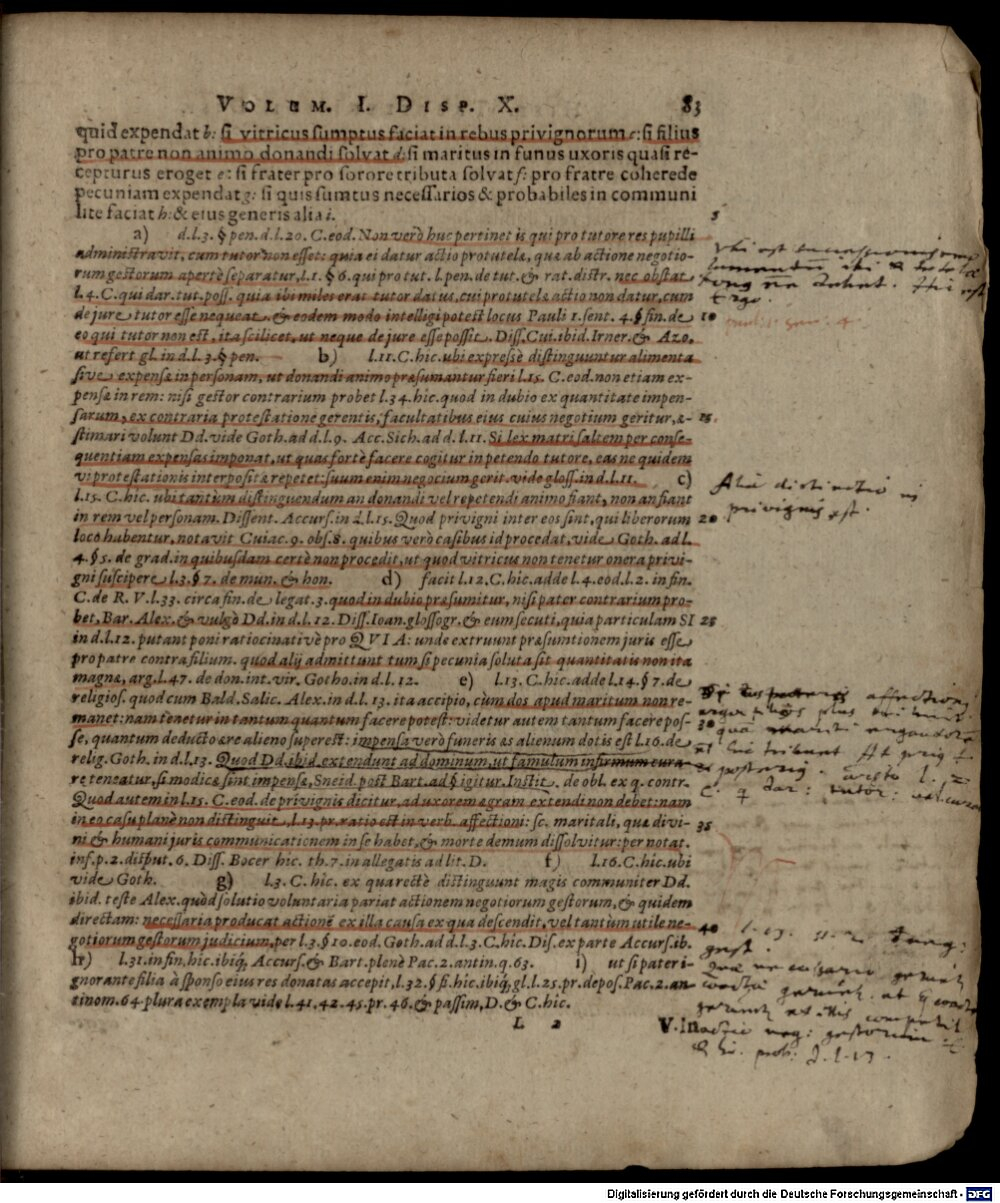 VOLUM. I. DISP. X. 83
quid expendat b: si vitricus sumptus faciat in rebus privignorum c: si filius
pro patre non animo donandi solvat d: si maritus in funus uxoris quasi re-
cepturus eroget e: si frater pro sorore tributa solvat f: pro fratre coherede
pecuniam expendat g: si quis sumtus necessarios & probabiles in communi
lite faciat h: & eius generis alia i.
5
a) d.l.3. § pen. d.l.20. C. eod. Non verò huc pertinet is qui pro tutore res pupilli
administravit, cum tutor non esset: quia ei datur actio protutelæ, quæ ab actione negotio-
rum gestorum apertè separatur, l.1. § 6. qui pro tut. l. pen. de tut. & rat. distr. nec obstat
l.4. C. qui dar. tut. poss. quia ibi miles erat tutor datus, cui protutelæ actio non datur, cum
de jure tutor esse nequeat, & eodem modo intelligi potest locus Pauli 1. sent. 4. § fin. de 10
eo qui tutor non est, ita scilicet, ut neque de jure esse possit. Diss. Cui. ibid. Irner. & Azo.
ut refert gl. in d.l.3. § pen. b) l.11. C. hic. ubi expressè distinguuntur alimenta
sive expensæ in personam, ut donandi animo præsumantur fieri l.15. C. eod. non etiam ex-
pensæ in rem: nisi gestor contrarium probet l.34. hic. quod in dubio ex quantitate impen-
sarum, ex contraria protestatione gerentis, facultatibus eius cuius negotium geritur, æ- 15
stimari volunt Dd. vide Goth. ad d.l.9. Acc. Sich. ad d.l.11. Si lex matri saltem per conse-
quentiam expensas imponat, ut quas fortè facere cogitur in petendo tutore, eas ne quidem
vi protestationis interpositæ repetet: suum enim negocium gerit. vide gloss. in d.l.11. c)
l.15. C. hic. ubi tantùm distinguendum an donandi vel repetendi animo fiant, non an fiant
in rem vel personam. Dissent. Accurs. in d.l.15. Quod privigni inter eos sint, qui liberorum 20
loco habentur, notavit Cuiac. 9. obs. 8. quibus verò casibus id procedat, vide Goth. ad l.
4. § 5. de grad. in quibusdam certè non procedit, ut quod vitricus non tenetur onera privi-
gni suscipere l.3. § 7. de mun. & hon. d) facit l.12. C. hic. adde l.4. eod. l.2. in fin.
C. de R. V. l.33. circa fin. de legat. 3. quod in dubio præsumitur, nisi pater contrarium pro-
bet, Bar. Alex. & vulgò Dd. in d.l.12. Diss. Ioan. glossogr. & eum secuti, quia particulam SI 25
in d.l.12. putant poni ratiocinativè pro QVIA: unde extruunt præsumtionem juris esse
pro patre contra filium. quod alij admittunt tum si pecunia soluta sit quantitatis non ita
magnæ, arg. l.47. de don. int. vir. Gotho. in d.l.12. e) l.13. C. hic. adde l.14. § 7. de
religios. quod cum Bald. Salic. Alex. in d.l.13. ita accipio, cùm dos apud maritum non re-
manet: nam tenetur in tantum quantum facere potest: videtur autem tantum facere pos- 30
se, quantum deducto ære alieno superest: impensa verò funeris æs alienum dotis est l.16. de
relig. Goth. in d.l.13. Quod Dd. ibid. extendunt ad dominum, ut famulum infirmum cura-
re teneatur, si modicæ sint impensæ, Sneid. post Bart. ad § igitur. Instit. de obl. ex q. contr.
Quod autem in l.15. C. eod. de privignis dicitur, ad uxorem ægram extendi non debet: nam
in eo casu planè non distinguit, l.13. pr. ratio est in verb. affectioni: sc. maritali, quæ divi- 35
ni & humani juris communicationem in se habet, & morte demum dissolvitur: per notat.
inf. p. 2. disput. 6. Diss. Bocer hic. th. 7. in allegatis ad lit. D. f) l.16. C. hic. ubi
vide Goth. g) l.3. C. hic. ex qua rectè distinguunt magis communiter Dd.
ibid. teste Alex. quòd solutio voluntaria pariat actionem negotiorum gestorum, & quidem
directam: necessaria producat actionẽ ex illa causa ex qua descendit, vel tantùm utile ne- 40
gotiorum gestorum judicium, per l.3. § 10. eod. Goth. ad d.l.3. C. hic. Dis. ex parte Accurs. ib.
h) l.31. in fin. hic. ibiq́; Accurs. & Bart. plenè Pac. 2. antin. q. 63. i) ut si pater i-
gnorante filia à sponso eius res donatas accepit, l.32. § fi. hic. ibiq́; gl. l.25. pr. depos. Pac. 2. an-
tinom. 64. plura exempla vide l.41. 42. 45. pr. 46. & passim, D. & C. hic.
L 2 V. In
Alia distinctio in
privignis est.